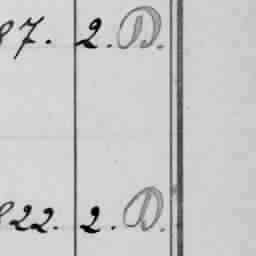 87. 2. D.
822. 2. D.